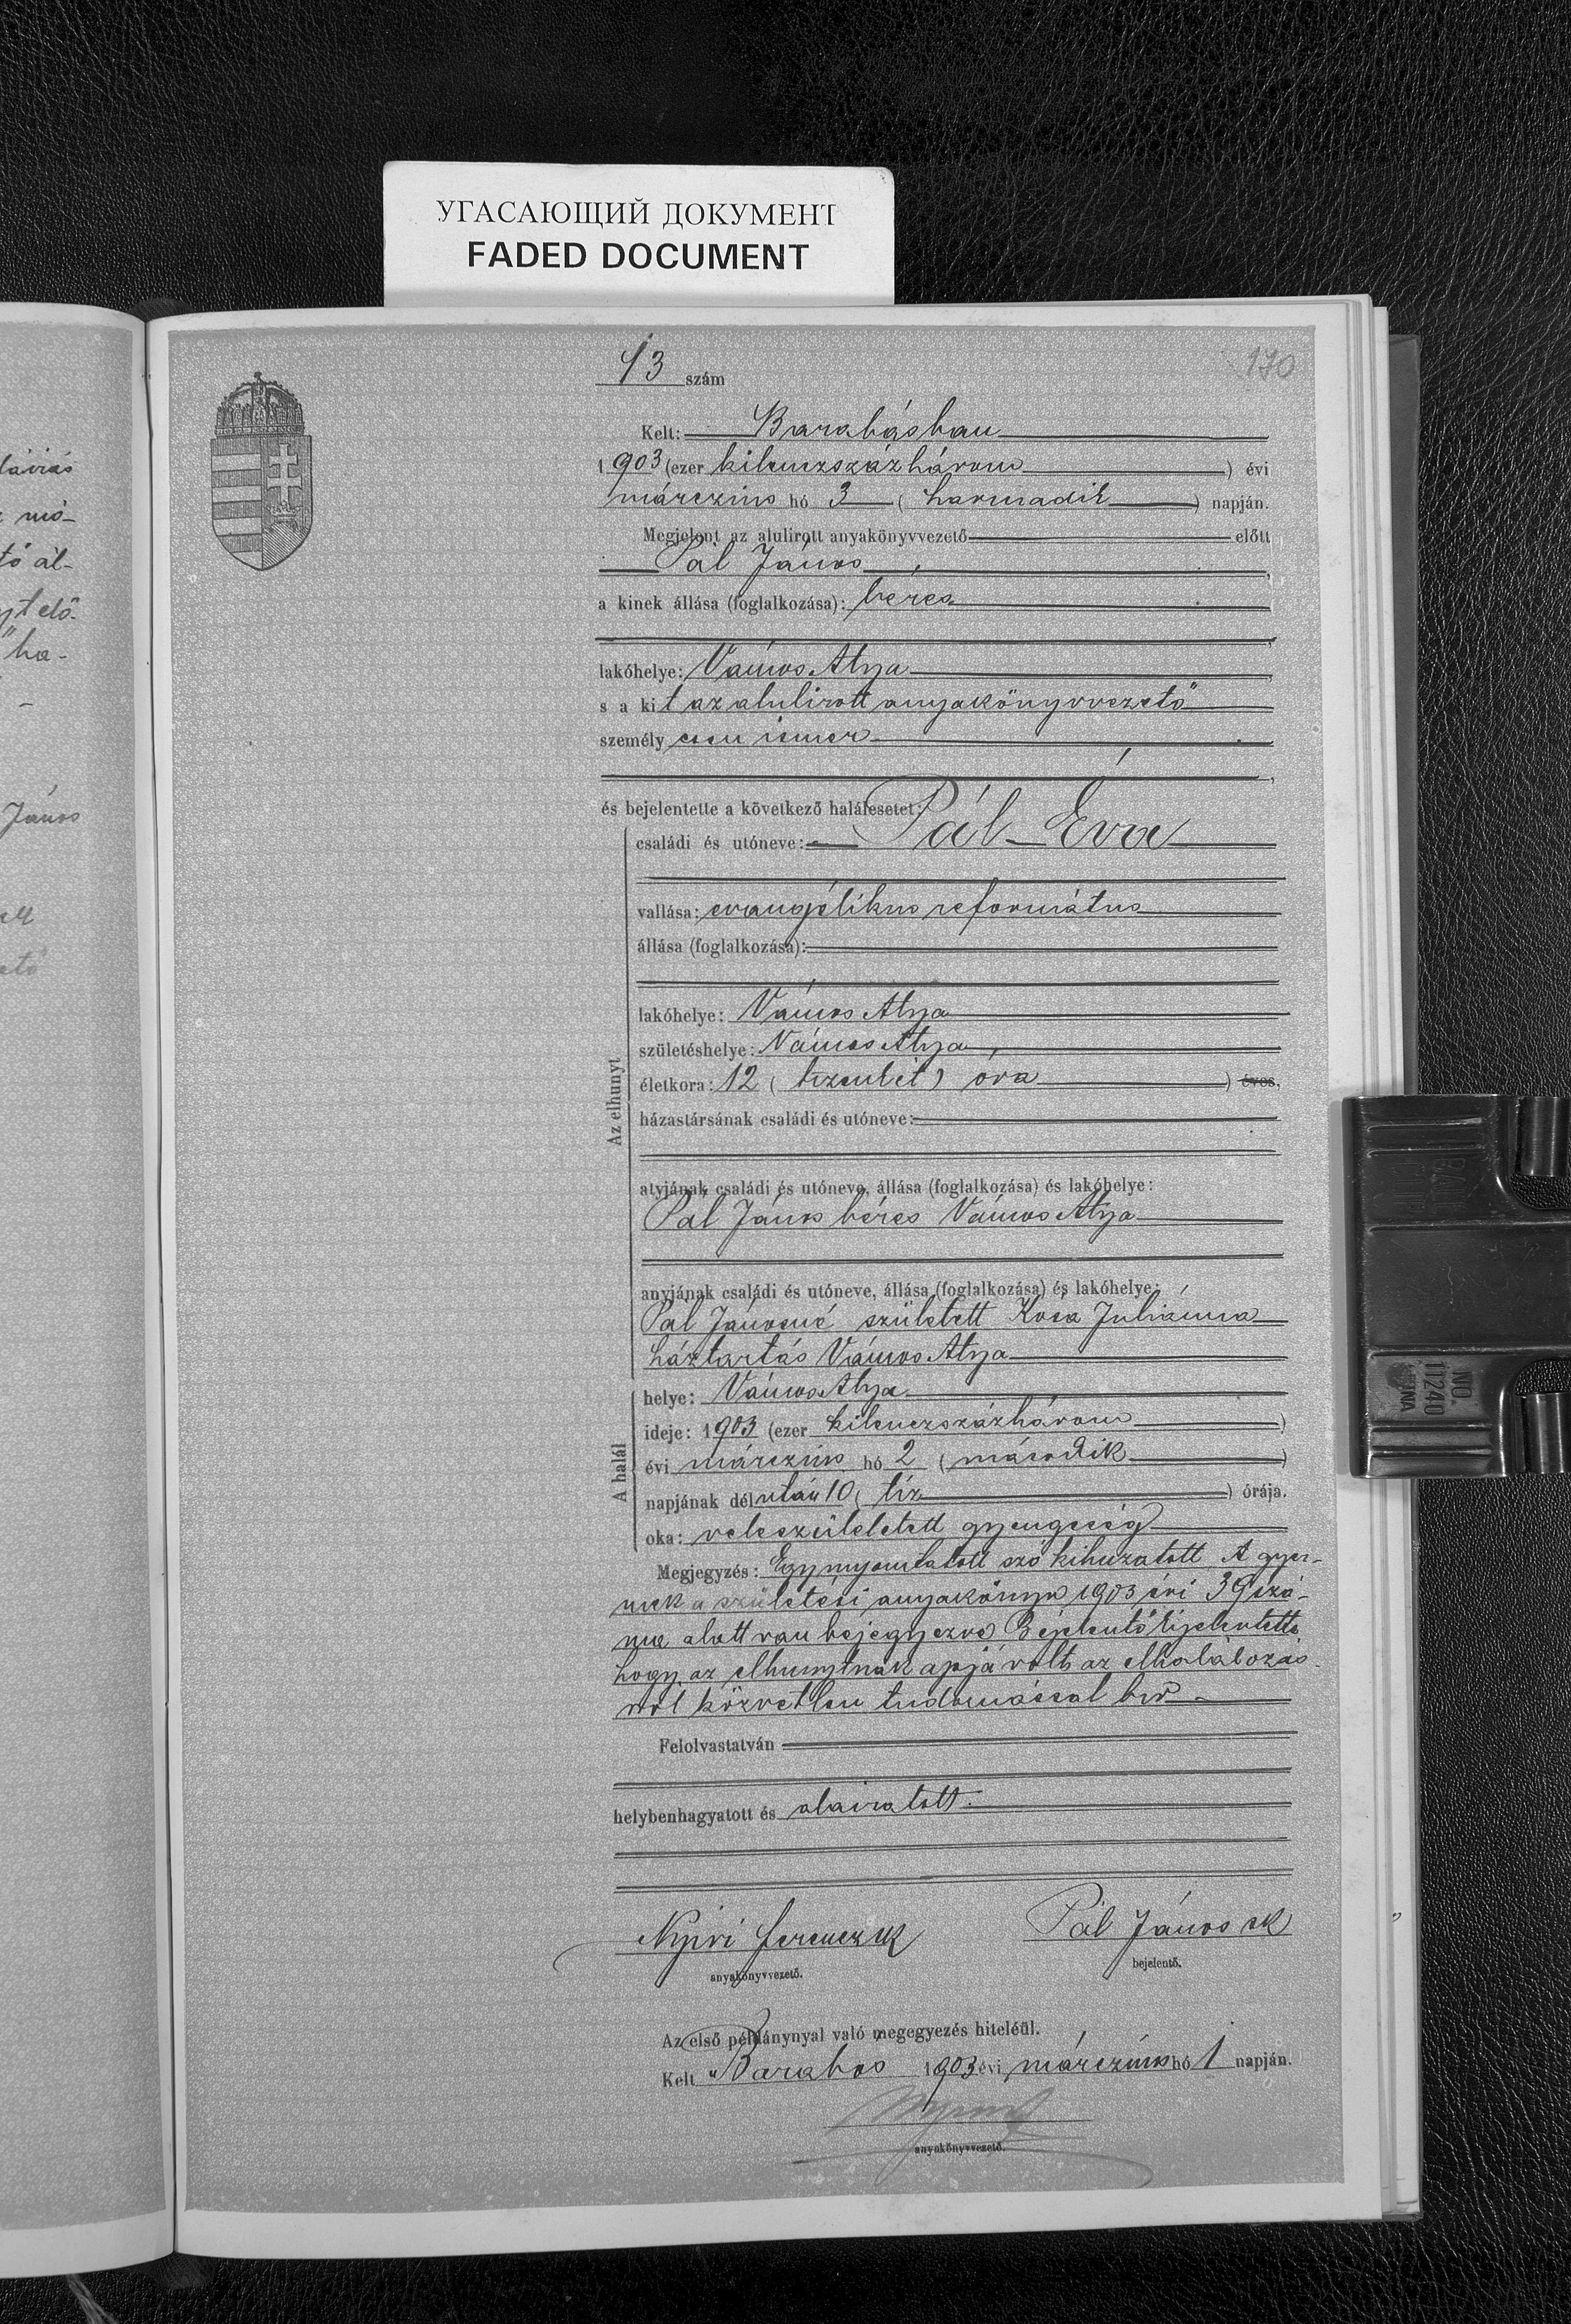 УГАСАЮЩИЙ ДОКУМЕНТ
FADED DOCUMENT
170
13 szám
Kelt: Barabásban
1903 (ezer kilenczszázhárom) évi
márczius hó 3 (harmadik) napján.
Megjelent az alulirott anyakönyvvezető előtt
Pál János,
a kinek állása (foglalkozása): béres
lakóhelye: Vámos Atya,
s a kit az alulirott anyakönyvvezető
személyesen ismer
és bejelentette a következő halálesetet:
Az elhunyt
családi és utóneve: Pál Éva
vallása: evangélikus református
állása (foglalkozása):
lakóhelye: Vámos Atya
születéshelye: Vámos Atya,
életkora: 12 (tizenkét) óra ) éves,
házastársának családi és utóneve:
atyjának családi és utóneve, állása (foglalkozása) és lakóhelye:
Pál János béres Vámos Atya
anyjának családi és utóneve, állása (foglalkozása) és lakóhelye:
Pál Jánosné született Kósa Juliánna
háztartás Vámos Atya
A halál
helye: Vámos Atya
ideje: 1903 (ezer kilenczszázhárom)
évi márczius hó 2 (második)
napjának délután 10 (tíz) órája.
oka: veleszületett gyengeség
Megjegyzés: Egy nyomtatott szó kihuzatott A gyer-
mek a születési anyakönyv 1903 évi 39 szá-
ma alatt van bejegyezve Bejelentő kijelentette
hogy az elhunytnak apja volt az elhalálozás
ról közvetlen tudomással bir
Felolvastatván
helybenhagyatott és aláiratott.
Nyiri Ferencz sk
anyakönyvvezető.
Pál János sk
bejelentő.
Az első példánynyal való megegyezés hiteléül.
Kelt Barabás 1903 évi márczius hó 1 napján.
anyakönyvvezető.
János
NO. 11240